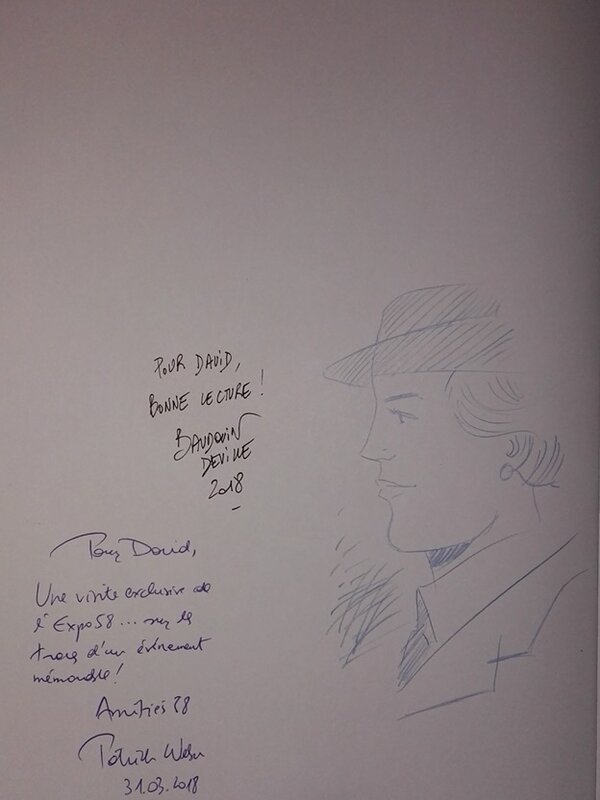 POUR DAVID,
BONNE LECTURE !
BAUDOUIN
DEVILLE
2018
Pour David,
Une visite exclusive de
l'Expo58... sur les
traces d'un événement
mémorable !
Amitiés 58
Patrick Weber
31.03.2018